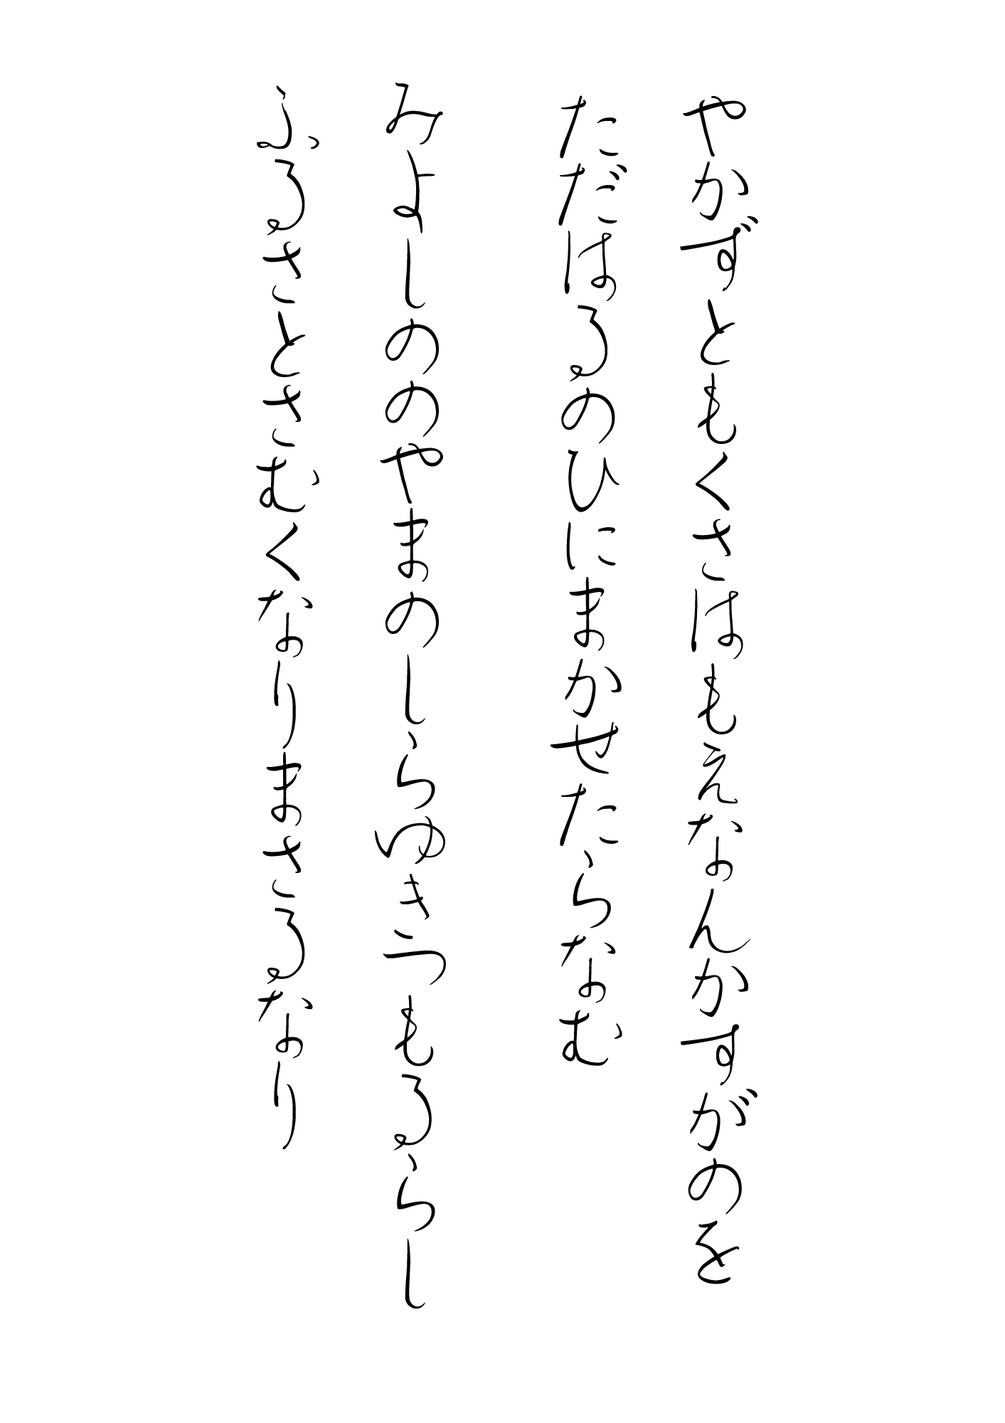 やかずともくさはもえなんかすがのを
ただはるのひにまかせたらなむ
みよしののやまのしらゆきつもるらし
ふるさとさむくなりまさるなり